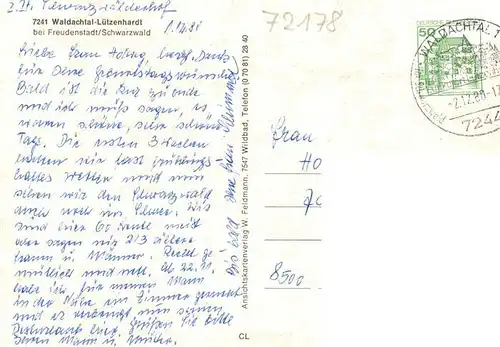 z. Zt. Schwarzwaldhof
7241 Waldachtal-Lützenhardt
bei Freudenstadt/Schwarzwald
1.12.81
Liebe Frau herzl. Dank
für Deine Geburtstagswünsche
Bald ist die Kur zu Ende
und ich muß sagen, es
waren schöne, sehr schöne
Tage. Die ersten 3 Wochen
hatten wir fast frühlings
haftes Wetter und nun
sehen wir den Schwarzwald
auch noch im Schnee. Wir
sind hier 60 Leute meist
oder sagen wir 2/3 ältere
Damen u. Männer. Recht ge-
mütlich und nett. Ab 22.11.
habe ich für meinen Mann
in der Nähe ein Zimmer gemietet
und er verbringt nun seinen
Resturlaub hier. Grüßen Sie bitte
Ihren Mann u. Kinder.
Bis bald Ihre Frau
Ansichtskartenverlag W. Feldmann, 7547 Wildbad, Telefon (0 70 81) 28 40
CL
72178
DEUTSCHE
50
WALDACHTAL 1
-2.12.
7244
Frau
Ho
8500